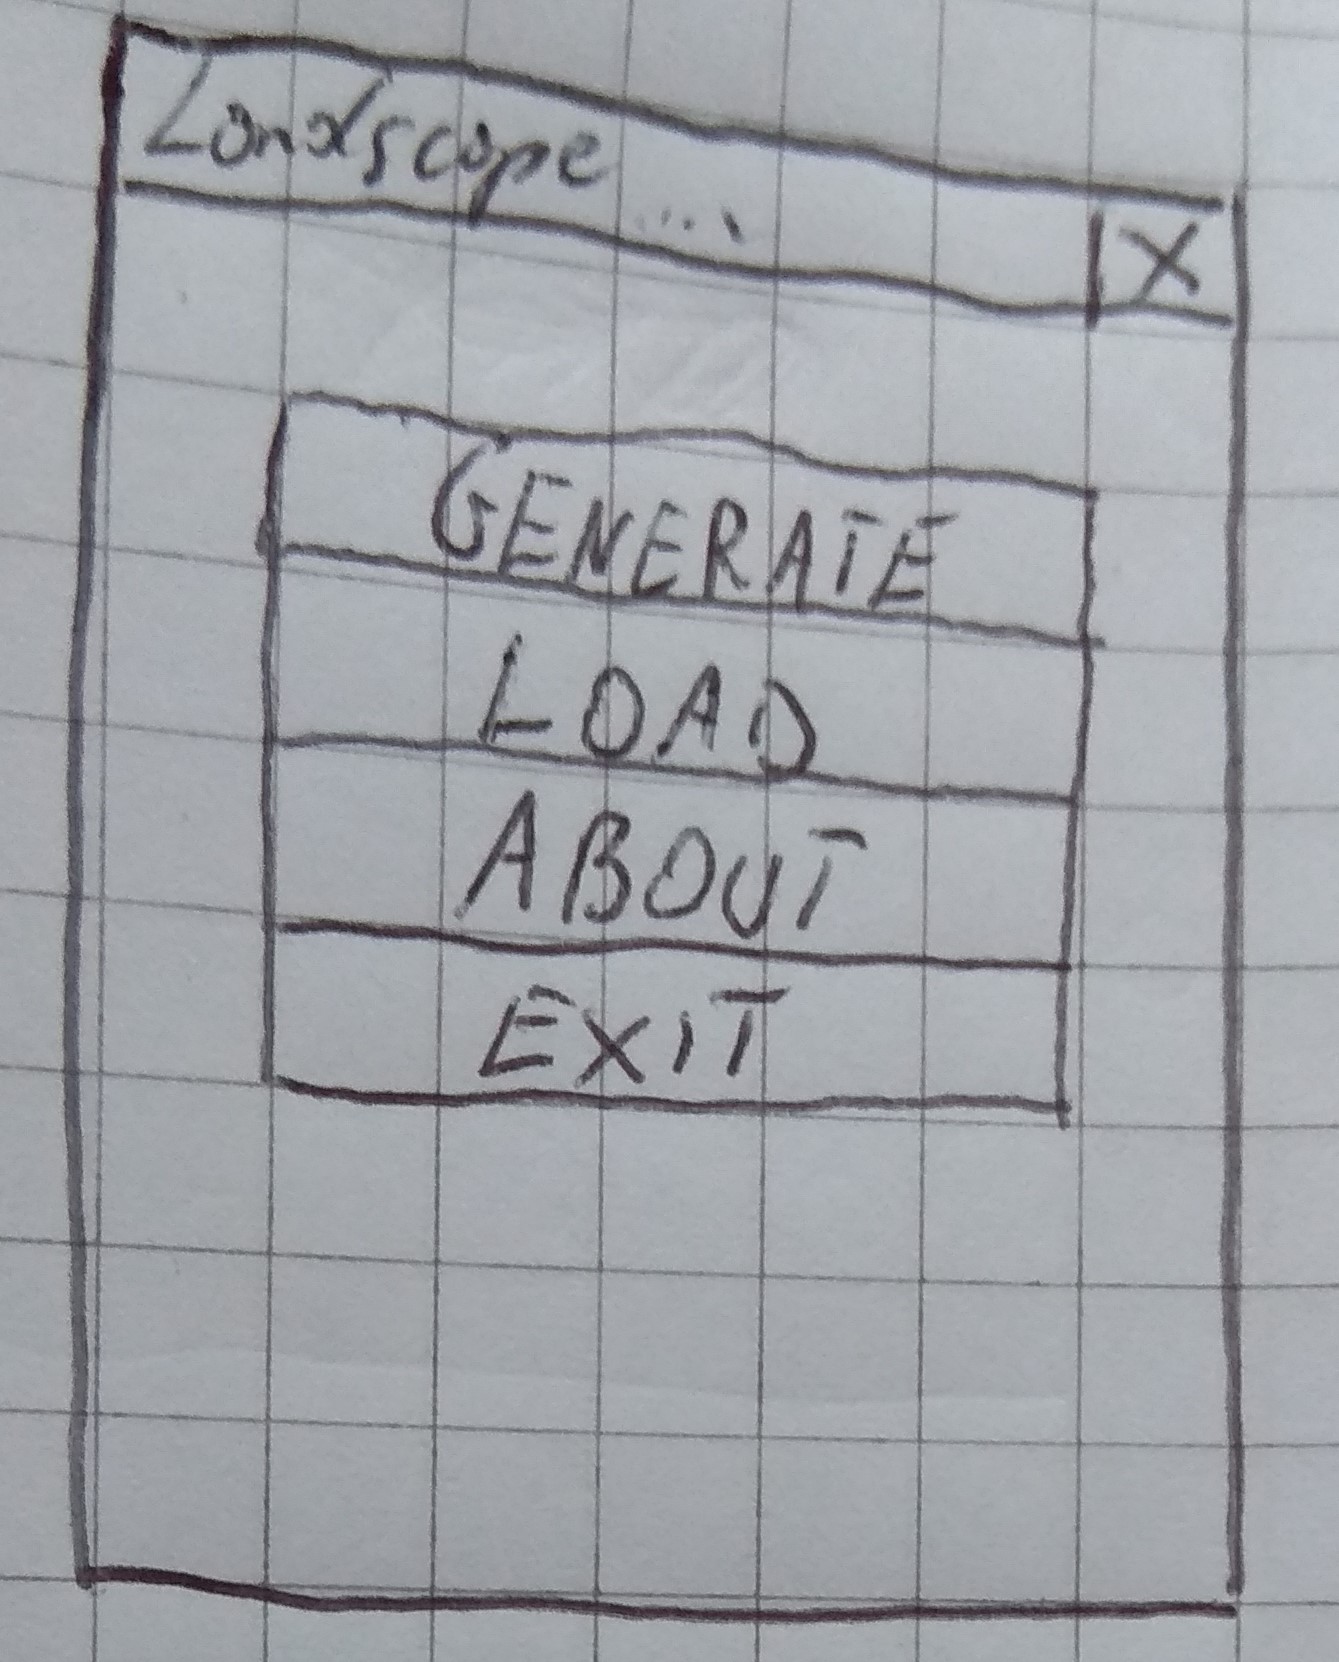 Landscape ... X
GENERATE
LOAD
ABOUT
EXIT